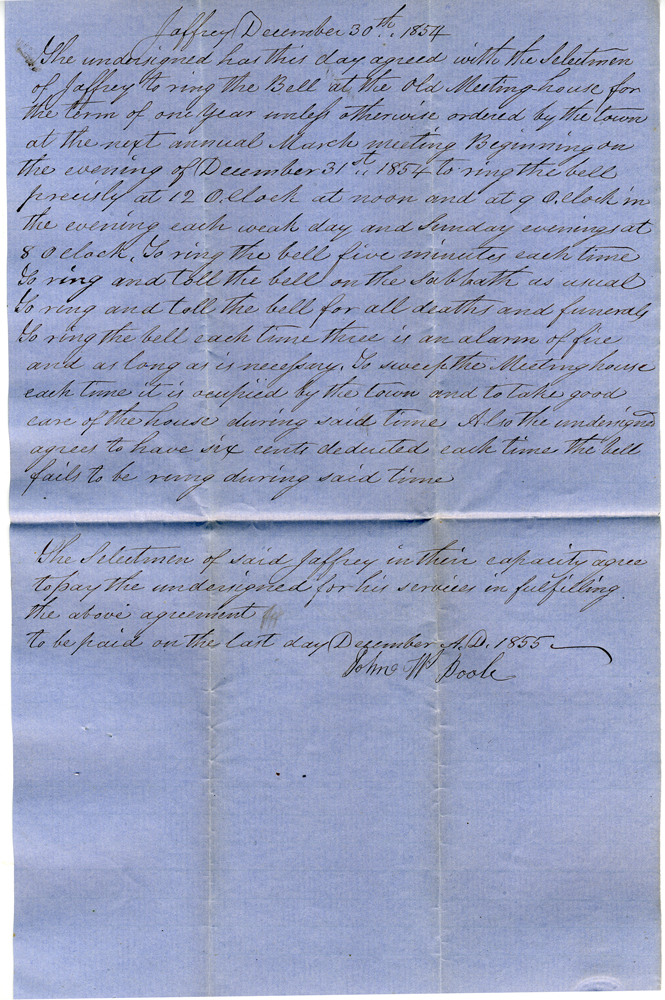 Jaffrey December 30th. 1854
The undersigned has this day agreed with the Selectmen
of Jaffrey to ring the Bell at the Old Meeting house for
the term of one Year unless otherwise ordered by the town
at the next annual March meeting Beginning on
the evening of December 31st. 1854 to ring the bell
precisly at 12 O.Clock at noon and at 9 O.Clock in
the evening each weak day and Sunday evenings at
8 O Clock. To ring the bell five minutes each time
To ring and toll the bell on the Sabbath as usual
To ring and toll the bell for all deaths and funerals
To ring the bell each time three is an alarm of fire
and as long as is necessary. To sweep the Meeting house
each time it is ocupied by the town and to take good
care of the house during said time Also the undersigned
agrees to have six cents deducted each time the bell
fails to be rung during said time
The Selectmen of said Jaffrey in their capacity agree
to pay the undersigned for his services in fulfilling
the above agreement
to be paid on the last day December A.D. 1855
John W Poole